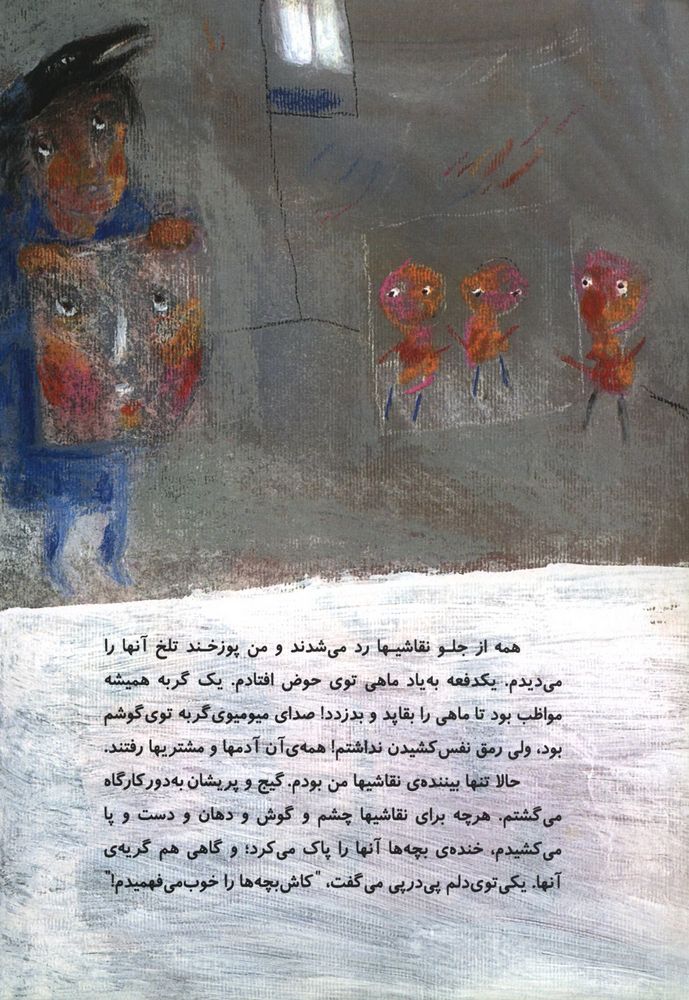 همه از جلـو نقاشیـها رد می‌شدند و من پوزخـند تلخ آنها را
می‌دیدم. یکدفعه به‌یاد ماهی توی حوض افتادم. یک گربه همیشه
مواظب بود تا ماهی را بقاپد و بدزدد! صدای میومیوی گربه توی گوشم
بود، ولی رمق نفس کشیدن نداشتم! همه‌ی آن آدمها و مشتریها رفتند.
حالا تنها بیننده‌ی نقاشیها من بودم. گیج و پریشان به‌دور کارگاه
می‌گشتم. هرچه برای نقاشیها چشم و گوش و دهان و دست و پا
می‌کشیدم، خنده‌ی بچه‌ها آنها را پاک می‌کرد؛ و گاهی هم گریه‌ی
آنها. یکی توی دلم پی‌درپی می‌گفت، "کاش بچه‌ها را خوب می‌فهمیدم!"